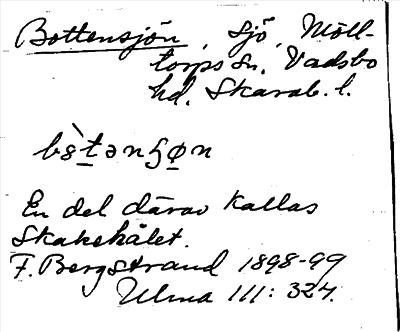 Bottensjön, sjö, Mölltorps
sn. Vadsbo
hd. Skarab. l.
bòtənʃøn
En del därav kallas
Skakehålet.
F. Bergstrand 1898-99
Ulma 111: 324.